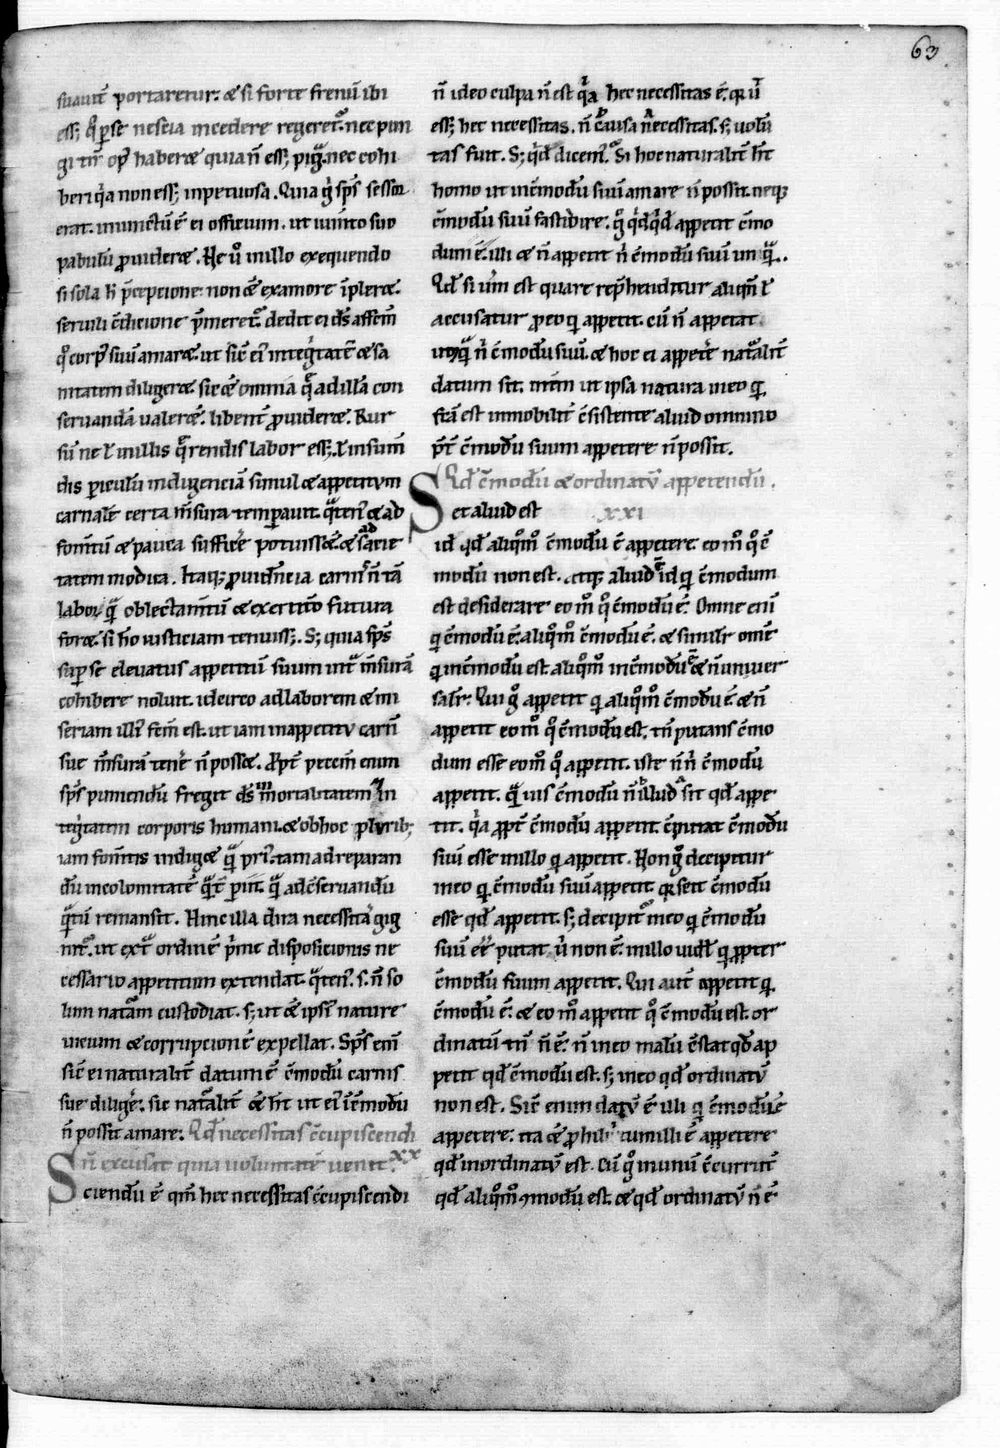 63
suauit̄ portaretur. & si forte frenū ibi
ess; q̊ p̱ se nescia incedere regeret᷑. nec pun
gi tn̄ op̄ haber& quia n̄ ess; pig̃. nec cohi
beri q̇a non ess; inpetuosa. Quia g̊ sp̄s sessor
erat. iniunctū ē ei officium. ut ium̄to suo
pabulū ꝓuider&. Ne ů in illo exequendo
si sola h̄ p̄ceptione non &̄ ex amore īpler&.
seruili c̄dicione p̄meret᷑. dedit ei ds̄ affc̄m
q̊ corp᷒ suū amar&. ut sic̄ ei᷒ inteġtatē & sa
nitatem diliger& sic &̄ omnia q̄ ad illā con
seruandā ualer&. libent̄ ꝓuider&. Rur
sū ne ł in illis q̄rendis labor ess;. ł in sum̄
dis p̱iculū indigenciā simul & appetitum
carnalē certa m̄sura temp̱auit. q̄ten᷒ & ad
fom̄tū & pauca suffic̄e potuiss&. & ad sacie
tatem modica. Itaq; ꝓuidn̄cia carni᷒ n̄ tā
labor q̄ oblectam̄tū & exercitiō futura
for&. si hō iusticiam tenuiss;. S; quia sp̄s
sup̱ se eleuatus appetitū suum int̄ m̄surā
cohibere noluit. idcirco ad laborem & mi
seriam illi᷒ fc̄m est. ut iam in appetitu carn̄
sue m̄surā tenē n̄ poss&. Ꝓpt̄ pccm̄ enim
sp̄s puniendū fregit ds̄ in mortalitatem in
teġtatem corporis humani. & ob hoc plurib;
iam fom̄tis indig& q̄ pri᷒. tam ad reparan
dū incolomitatē q̄tē p̱iit. q̄ ad c̄seruandū
q̄tū remansit. Hinc illa dira necessitas gig
nit᷑. ut ext̄ ordinē ṗme disposicionis ne
cessario appetitum extendat. q̄ten᷒. s. n̄ so
lum nat̄am custodiat. s; ut &̄ ipsi᷒ nature
uicium & corrupcionē expellat. Sp̄s eni̅
sic̄ ei naturalit̄ datum ē c̄modū carnis
sue diligē. sic nat̄alit̄ &̄ h̄t ut ei᷒ īc̄modū
n̄ possit amare. Qd̄ necessitas c̄cupiscendi
n̄ excusat quia uoluntatē uenit XX
Sciendū ē qm̄ hec necessitas c̄cupiscendi
n̄ ideo culpa n̄ est q̇a hec necessitas ē. q̱ ū
ess; hec necessitas. n̄ causa necessitas. s; uolū
tas fuit. S; q̇d dicem᷒. Si hoc naturalit̄ h̄t
homo ut inc̄modū suū amare n̄ possit. neq;
c̄modū suū fastidire. g̊ q̇dq̇d appetit c̄mo
dum ē. illi & n̄ appetit ṅ c̄modū suū unq̄.
Qd̄ si uerū est quare rep̱henditur aliqm̄ ł
accusatur ꝓ eo q̱ appetit. cū n̄ appetat
unq̄ ṅ c̄modū suū. & hoc ei appetē nat̄alit̄
datum sit. item ut ipsa natura in eo q̱
fc̄a est inmobilit̄ c̄sistente aliud omnino
p̄t̄ c̄modū suum appetere n̄ possit.
Qd̄ c̄modū & ordinatū appetendū.
Set aliud est XXI
id qd̄ aliq̊m̊ c̄modū ē appetere. eo m̊ q̊ c̄
modū non est. atq; aliud ē id q̱ c̄modum
est desiderare eo m̊ q̊ c̄modū ē. Omne eni̅
q̱ c̄modū ē. aliq̊m̊ c̄modū ē. & similit̄ omē
q̱ inc̄modū est. aliq̊m̊ inc̄modū ē & n̄ uniuer
salit̄. Qui g̊ appetit q̱ aliq̊m̊ c̄modū ē & n̄
appetit eo m̊ q̊ c̄modū est. tn̄ putans c̄mo
dum esse eo m̊ q̊ appetit. iste n̄ ṅ c̄modū
appetit. q̄uis c̄modū n̄ illud sit qd̄ appe
tit. q̇a ꝓpt̄ c̄modū appetit. c̄putat c̄modū
suū esse in illo q̱ appetit. Non g̊ decipitur
in eo q̱ c̄modū suū appetit. q̱ scit c̄modū
esse qd̄ appetit. s; decipit᷑ in eo q̱ c̄modū
suū eē putat. u̇ non ē. in illo uidel̄ q̱ ꝓpter
c̄modū suum appetit. Qui aut̄ appetit q̱
c̄modū ē. & eo m̊ appetit q̊ c̄modū est. or
dinatū tn̄ n̄ ē. n̄ in eo malū c̄stat qd̄ ap
petit qd̄ c̄modū est. s; in eo qd̄ ordinatū
non est. Sic̄ enim datū ē illi q̱ c̄modū ē
appetere. ita &̄ ꝓhibitum illi ē appetere
qd̄ inordinatū est. Cū g̊ in unū c̄currūt
qd̄ aliq̊m̊ c̄modū est. & qd̄ ordinatū n̄ ē